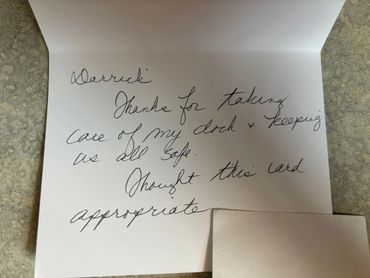 Darrick
Thanks for taking
care of my dock + keeping
us all safe.
Thought this card
appropriate